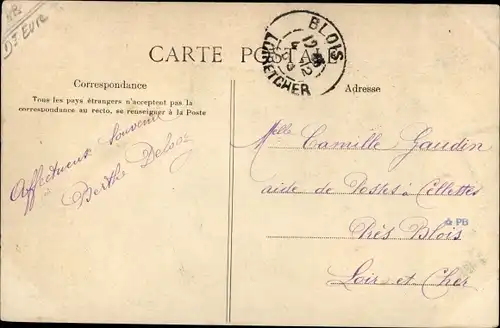 Dt Eure
CARTE POSTALE
BLOIS
LOIR-ET-CHER
Correspondance
Tous les pays étrangers n'acceptent pas la
correspondance au recto, se renseigner à la Poste
Adresse
Affectueux Souvenir
Berthe
Melle Camille Gaudin
aide de Postes à Cellettes
Près Blois
Loir et Cher
PB